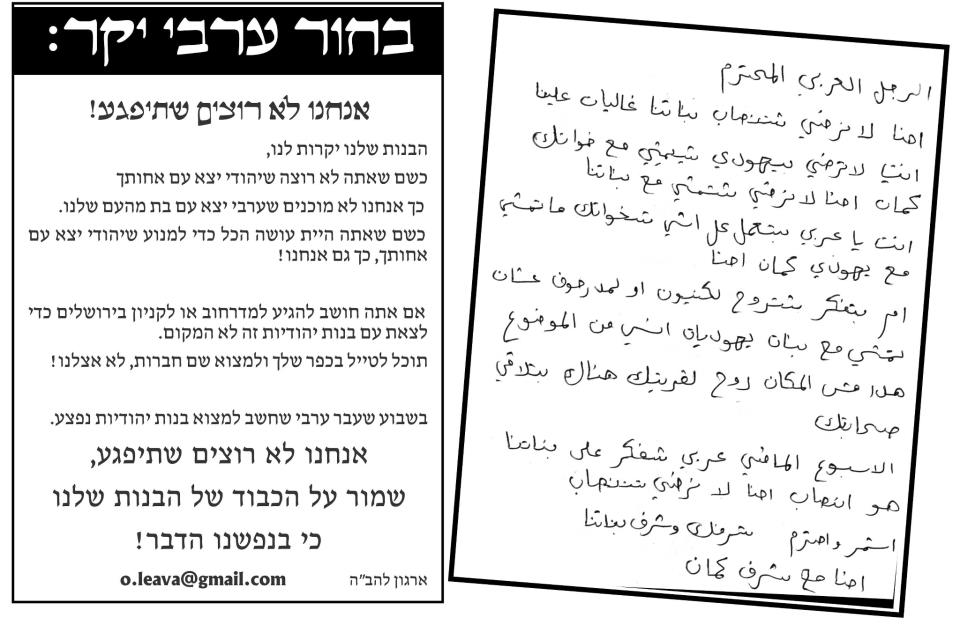 בחור ערבי יקר:
אנחנו לא רוצים שתיפגע!
הבנות שלנו יקרות לנו,
כשם שאתה לא רוצה שיהודי יצא עם אחותך
כך אנחנו לא מוכנים שערבי יצא עם בת מהעם שלנו.
כשם שאתה היית עושה הכל כדי למנוע שיהודי יצא עם
אחותך, כך גם אנחנו!
אם אתה חושב להגיע למדרחוב או לקניון בירושלים כדי
לצאת עם בנות יהודיות זה לא המקום.
תוכל לטייל בכפר שלך ולמצוא שם חברות, לא אצלנו!
בשבוע שעבר ערבי שחשב למצוא בנות יהודיות נפצע.
אנחנו לא רוצים שתיפגע,
שמור על הכבוד של הבנות שלנו
כי בנפשנו הדבר!
ארגון להב"ה o.leava@gmail.com
الرجل العربي المحترم
احنا لا نرضي تنصاب بناتنا غاليات علينا
انت لا ترضي بيهودي يمشي مع خواتك
كمان احنا لا نرضي تتمشي مع بناتنا
انت يا عربي بتعمل كل اشي خواتك ما تمشي
مع يهودي كمان احنا
ام بتفكر تتروح لكنيون او لمدرحوف عشان
تمشي مع بنات يهوديات انسي من الموضوع
هدا مش المكان روح لقريتك هناك بتلاقي
صحابتك
الاسبوع الماضي عربي تفكر على بناتنا
هو انصاب احنا لا نرضي تنصاب
استمر واحترم شرفك وشرف بناتنا
احنا مع شرف كمان